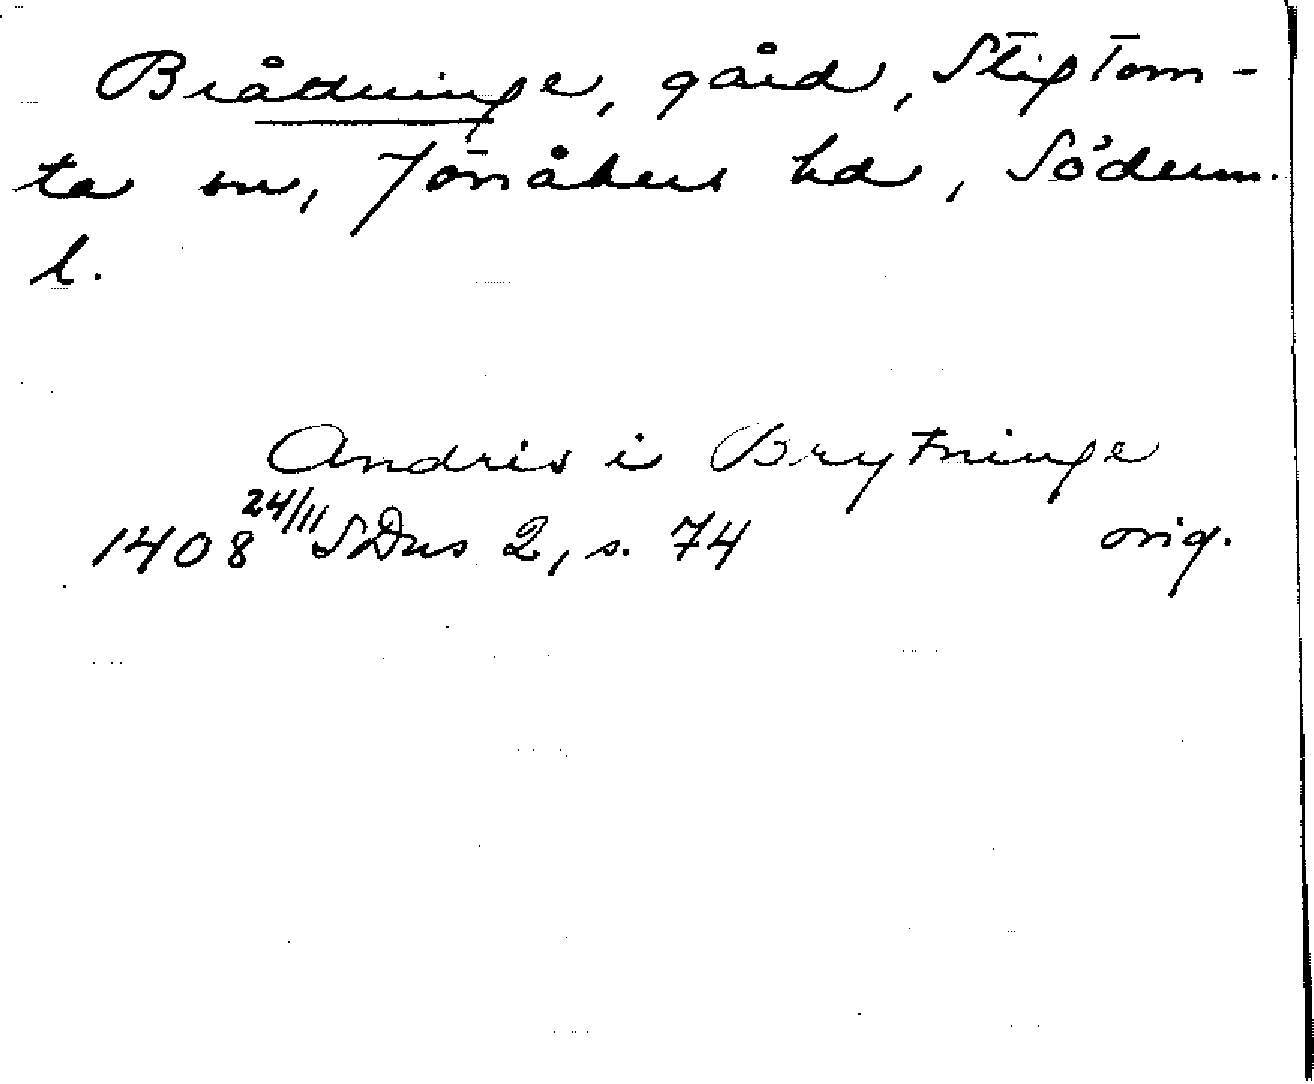 Brådtninge, gård, Stigtom-
ta sn, Jönåkers hd, Söderm.
l.
Andris i Brytninge
1408 24/11 SDns 2, s. 74 orig.